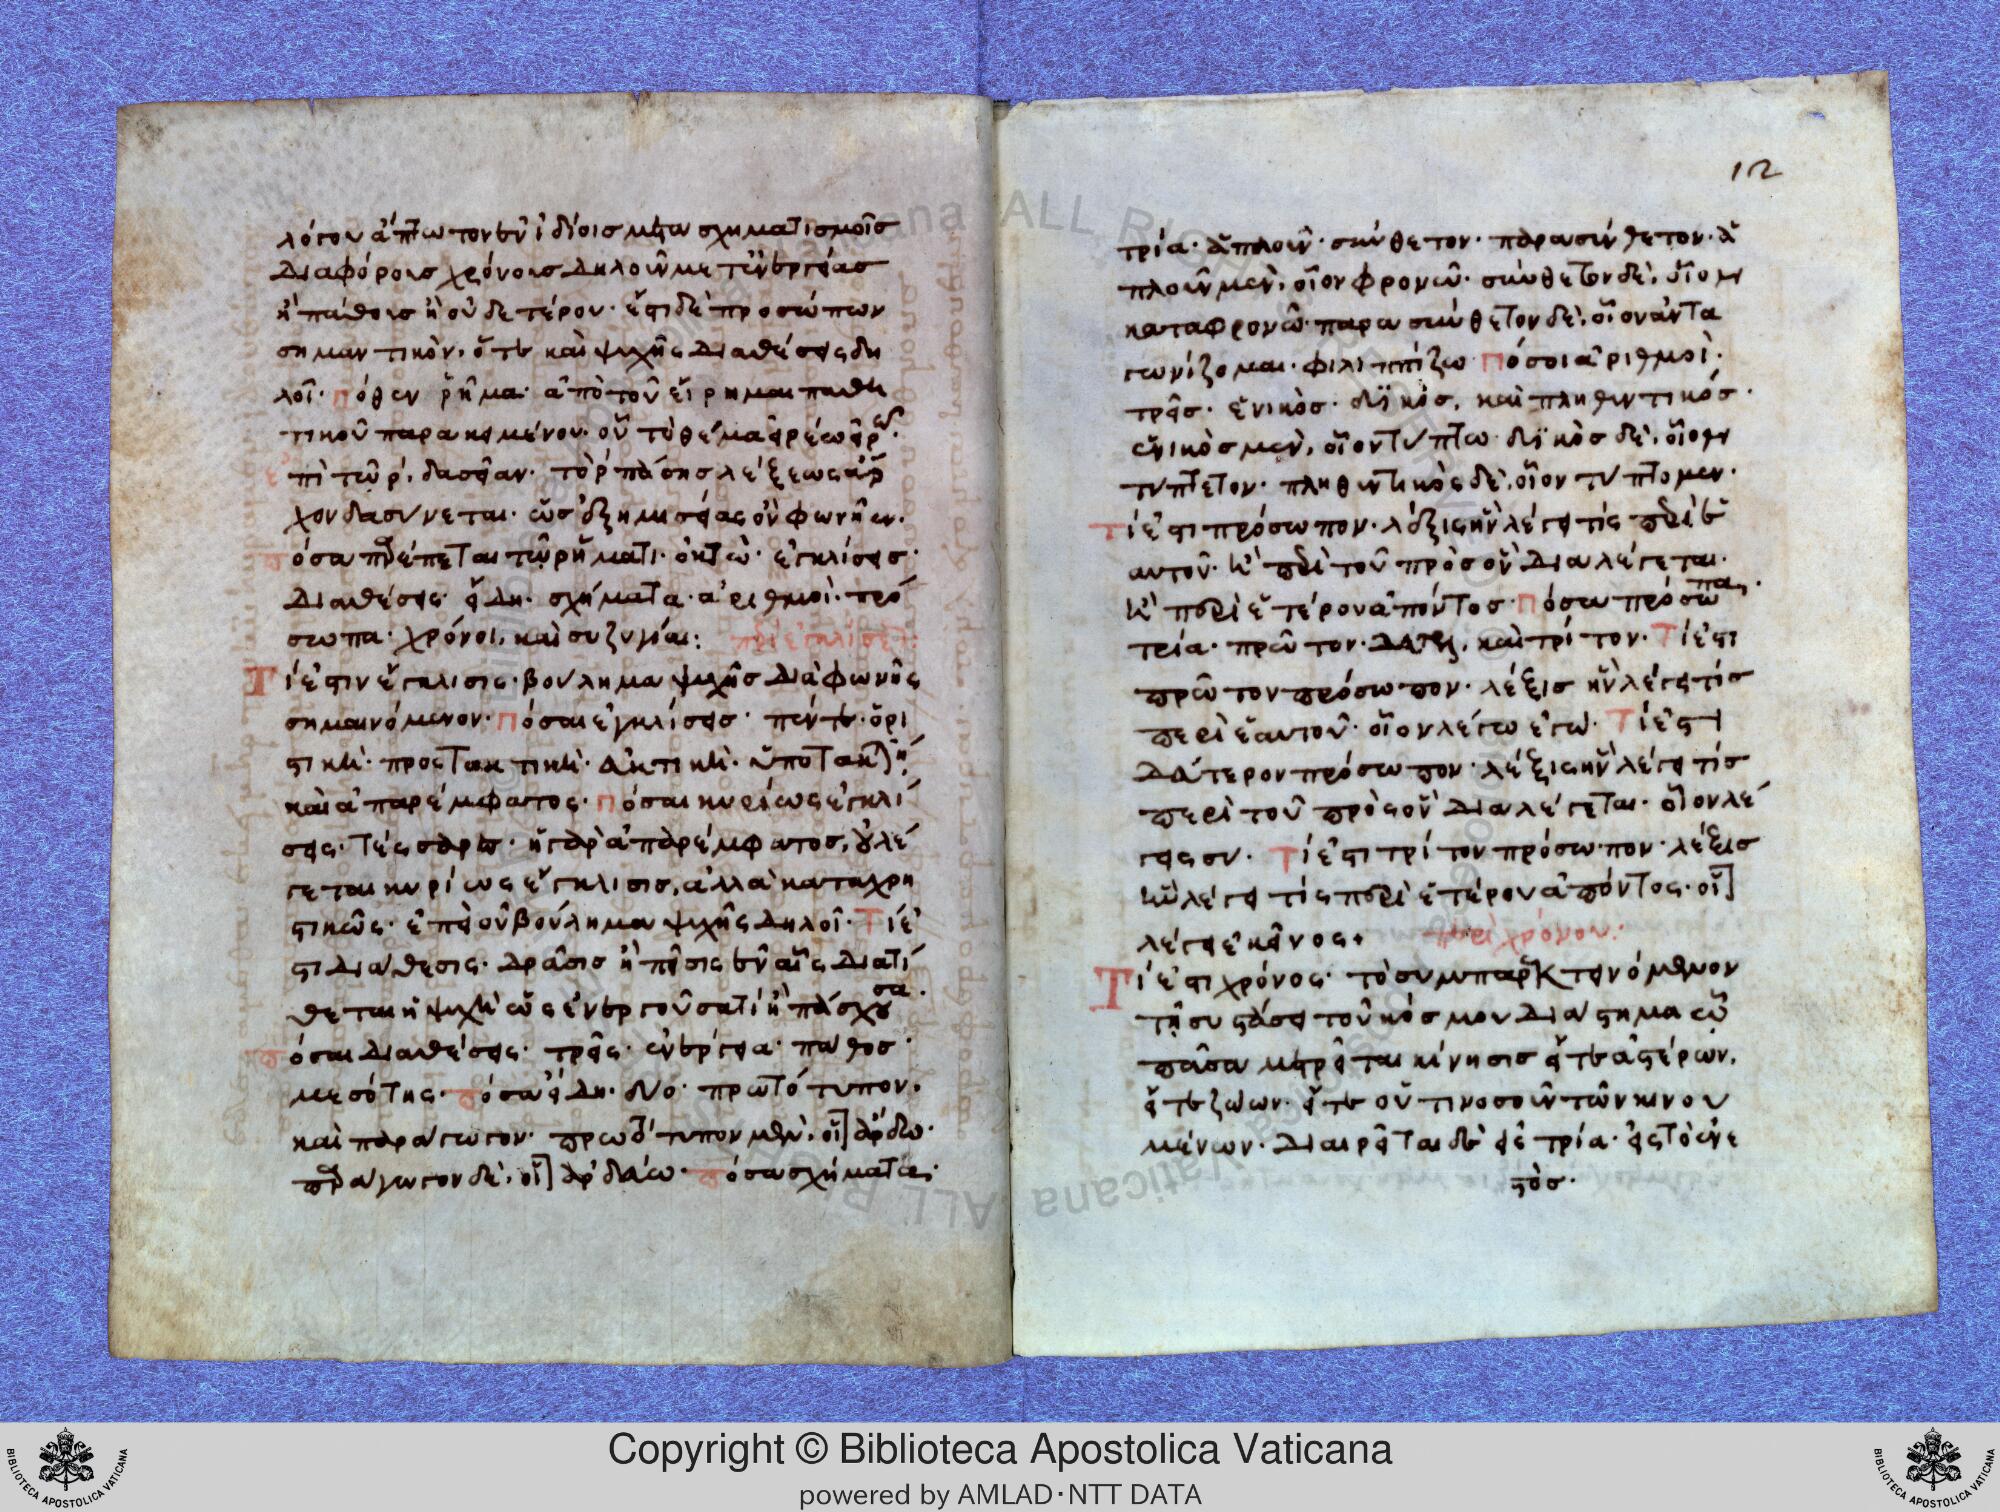 λόγου ἄπτωτον ἐν ἰδίοις μετασχηματισμοῖς
διαφόροις χρόνοις δηλοῦν μετ' ἐνεργείας
ἢ πάθους ἢ οὐδετέρου· ἔστι δὲ προσώπων
σημαντικὸν, ὅτε καὶ ψυχῆς διαθέσεις δη
λοῖ· πόθεν ῥῆμα· ἀπὸ τοῦ εἴρημαι παθη
τικοῦ παρακειμένου· οὗ τὸ θέμα
πὶ τῶ ρ, δασεῖαν· τὸ ρ πάσης λέξεως ἄρ
χον δασύνεται· φωνῆεν·
πόσα παρέπεται τῶ ῥήματι· ὀκτὼ· ἐγκλίσεις·
διαθέσεις· εἴδη· σχήματα· ἀριθμοὶ· πρό
σωπα· χρόνοι, καὶ συζυγίαι: περὶ ἐγκλίσεων:
Τί ἐστιν ἔγκλισις· βούλημα ψυχῆς διὰ φωνῆς
σημαινόμενον· πόσαι ἐγκλίσεις· πέντε· ὁρι
στικὴ· προστακτικὴ· εὐκτικὴ· ὑποτακτικὴ·
καὶ ἀπαρέμφατος· πόσαι κυρίως ἐγκλί
σεις· τέσσαρες· ἡ γὰρ ἀπαρέμφατος, οὐ λέ
γεται κυρίως ἔγκλισις, ἀλλὰ καταχρη
στικῶς· ἐπεὶ οὐ βούλημα ψυχῆς δηλοῖ· Τί ἐ
στι διάθεσις· δρᾶσις ἢ πεῖσις ἐν αἷς διατί
θεται ἡ ψυχὴ ὡς ἐνεργοῦσα τί ἢ πάσχουσα·
πόσαι διαθέσεις· τρεῖς· ἐνέργεια· πάθος·
μεσότης· πόσα εἴδη· δύο· πρωτότυπον·
καὶ παράγωγον· πρωτότυπον μὲν, οἷον ἄρδω·
παράγωγον δὲ, οἷον ἀρδεύω· πόσα σχήματα·
12
τρία· ἁπλοῦν· σύνθετον· παρασύνθετον· ἁ
πλοῦν μὲν, οἷον φρονῶ· σύνθετον δὲ, οἷον
καταφρονῶ· παρασύνθετον δὲ, οἷον ἀντι
γωνίζομαι· φιλιππίζω πόσοι ἀριθμοὶ·
τρεῖς· ἑνικὸς· δυϊκός, καὶ πληθυντικός·
ἑνικὸς μὲν, οἷον τύπτω· δυϊκὸς δὲ, οἷον
τύπτετον· πληθυντικὸς δὲ, οἷον τύπτομεν·
Τί ἐστι πρόσωπον· λέξις ἣν λέγει τίς περὶ ἑ
αυτοῦ· καὶ περὶ τοῦ πρὸς ὃν διαλέγεται·
καὶ περὶ ἑτέρου ἀπόντος· πόσα πρόσωπα·
τρία· πρῶτον· δεύτερον, καὶ τρίτον· Τί ἐστι
πρῶτον πρόσωπον· λέξις ἣν λέγει τίς
περὶ ἑαυτοῦ· οἷον λέγω ἐγώ· Τί ἐστι
δεύτερον πρόσωπον· λέξις ἣν λέγει τίς
περὶ τοῦ πρὸς ὃν διαλέγεται· οἷον λέ
γεις συ· Τί ἐστι τρίτον πρόσωπον· λέξις
ἣν λέγει τίς περὶ ἑτέρου ἀπόντος· οἷον
λέγει ἐκεῖνος+ περὶ χρόνου:
Τί ἐστι χρόνος· τὸ συμπαρεκτεινόμενον
τῇ συστάσει τοῦ κόσμου διάστημα ἐν ᾧ
πᾶσα μετρεῖται κίνησις εἴτε ἀστέρων,
εἴτε ζώων· εἴτε οὑτινοσοῦν τῶν κινου
μένων· διαιρεῖται δὲ εἰς τρία· εἰς τὸ ἐνε
στὸς·